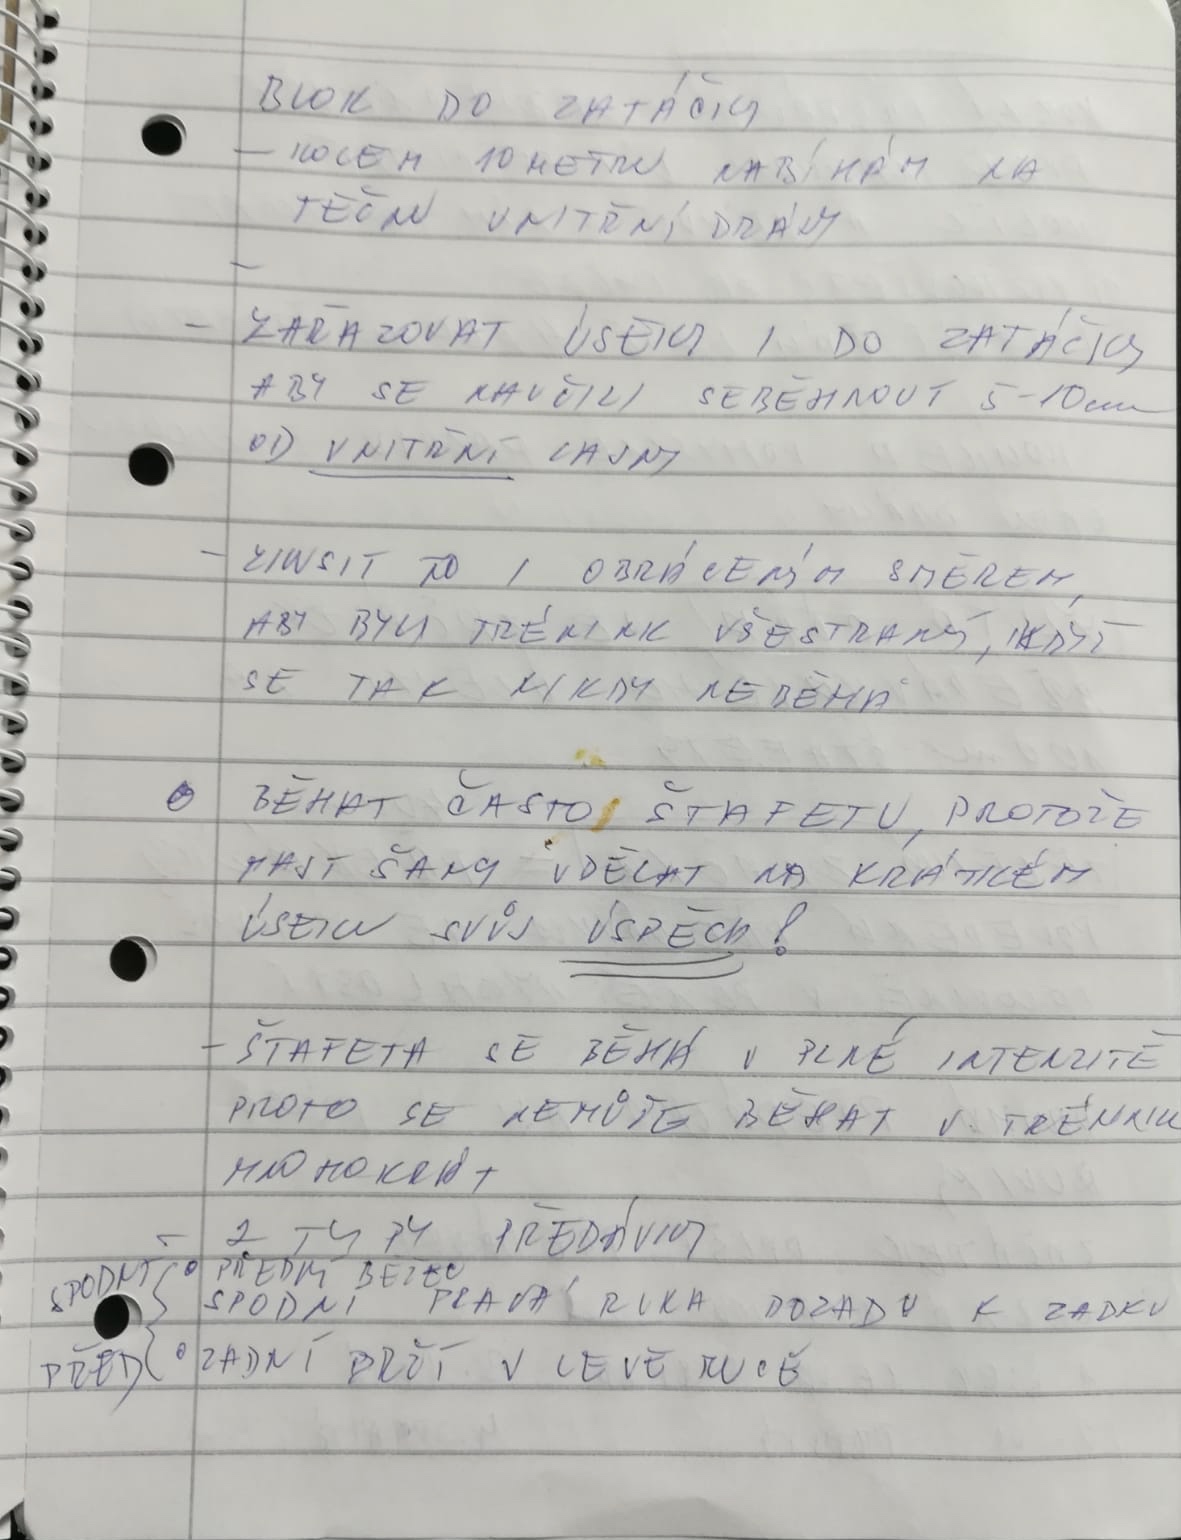 BLOK DO ZATÁČKY
- KOLEM 10 METRU NABÍHÁM NA
TEČNU VNITŘNÍ DRÁHY
-
- ZAŘAZOVAT ÚSEKY I DO ZATÁČKY
ABY SE NAUČILI SEBĚHNOUT 5-10cm
OD VNITŘNÍ LAJNY
- ZKUSIT TO I OBRÁCENÝM SMĚREM,
ABY BYL TRÉNINK VŠESTRANÝ, IKDYŽ
SE TAK NIKDY NEBĚHÁ
BĚHAT ČASTO ŠTAFETU, PROTOŽE
MAJT ŠANY UDĚLAT NA KRÁTKÉM
ÚSEKU SVŮJ ÚSPĚCH!
- ŠTAFETA SE BĚHÁ V PLNÉ INTENZITĚ
PROTO SE NEMŮŽE BĚHAT V TRÉNINKU
MNOHOKRÁT
- 2 TYPY PŘEDÁVKY
SPODNÍ PŘEDNÍ BĚŽEC
SPODNÍ PRAVÁ RUKA DOZADU K ZADKU
PŘED ZADNÍ DRŽÍ V LEVÉ RUCE